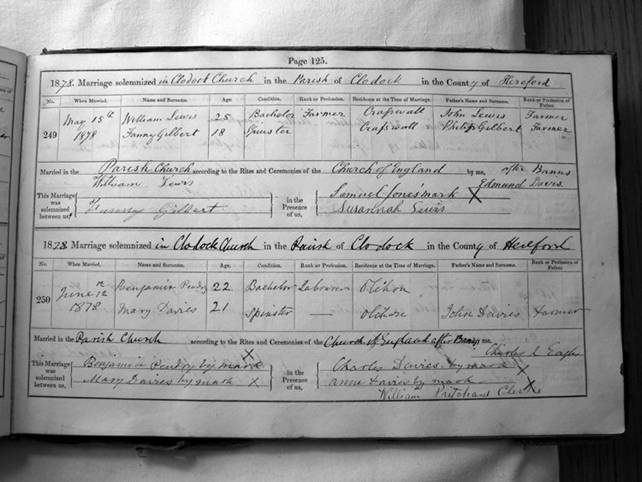 Page 125.
1878. Marriage solemnized in Clodock Church in the Parish of Clodock in the County of Hereford
No. When Married. Name and Surname. Age. Condition. Rank or Profession. Residence at the Time of Marriage. Father's Name and Surname. Rank or Profession of Father.
249 May 15th William Lewis 25 Bachelor Farmer Craswall John Lewis Farmer
1878 Fanny Gilbert 18 Spinster Craswall Philip Gilbert Farmer
Married in the Parish Church according to the Rites and Ceremonies of the Church of England after Banns by me,
Edmund Davis.
This Marriage was solemnized between us, William Lewis
Gilbert
in the Presence of us, Samuel Jones mark X
Susannah Lewis
1878 Marriage solemnized in Clodock Church in the Parish of Clodock in the County of Hereford
No. When Married. Name and Surname. Age. Condition. Rank or Profession. Residence at the Time of Marriage. Father's Name and Surname. Rank or Profession of Father.
250 June 12 Benjamin 22 Bachelor Labourer Olchon
1878 Mary Davies 21 Spinster — Olchon John Davies Farmer
Married in the Parish Church according to the Rites and Ceremonies of the Church of England after Banns by me,
Charles L Eagles
This Marriage was solemnized between us, Benjamin by mark X
Mary Davies by mark X
in the Presence of us, Charles Davies by mark X
Anne Davies by mark X
William Pritchard Clerk